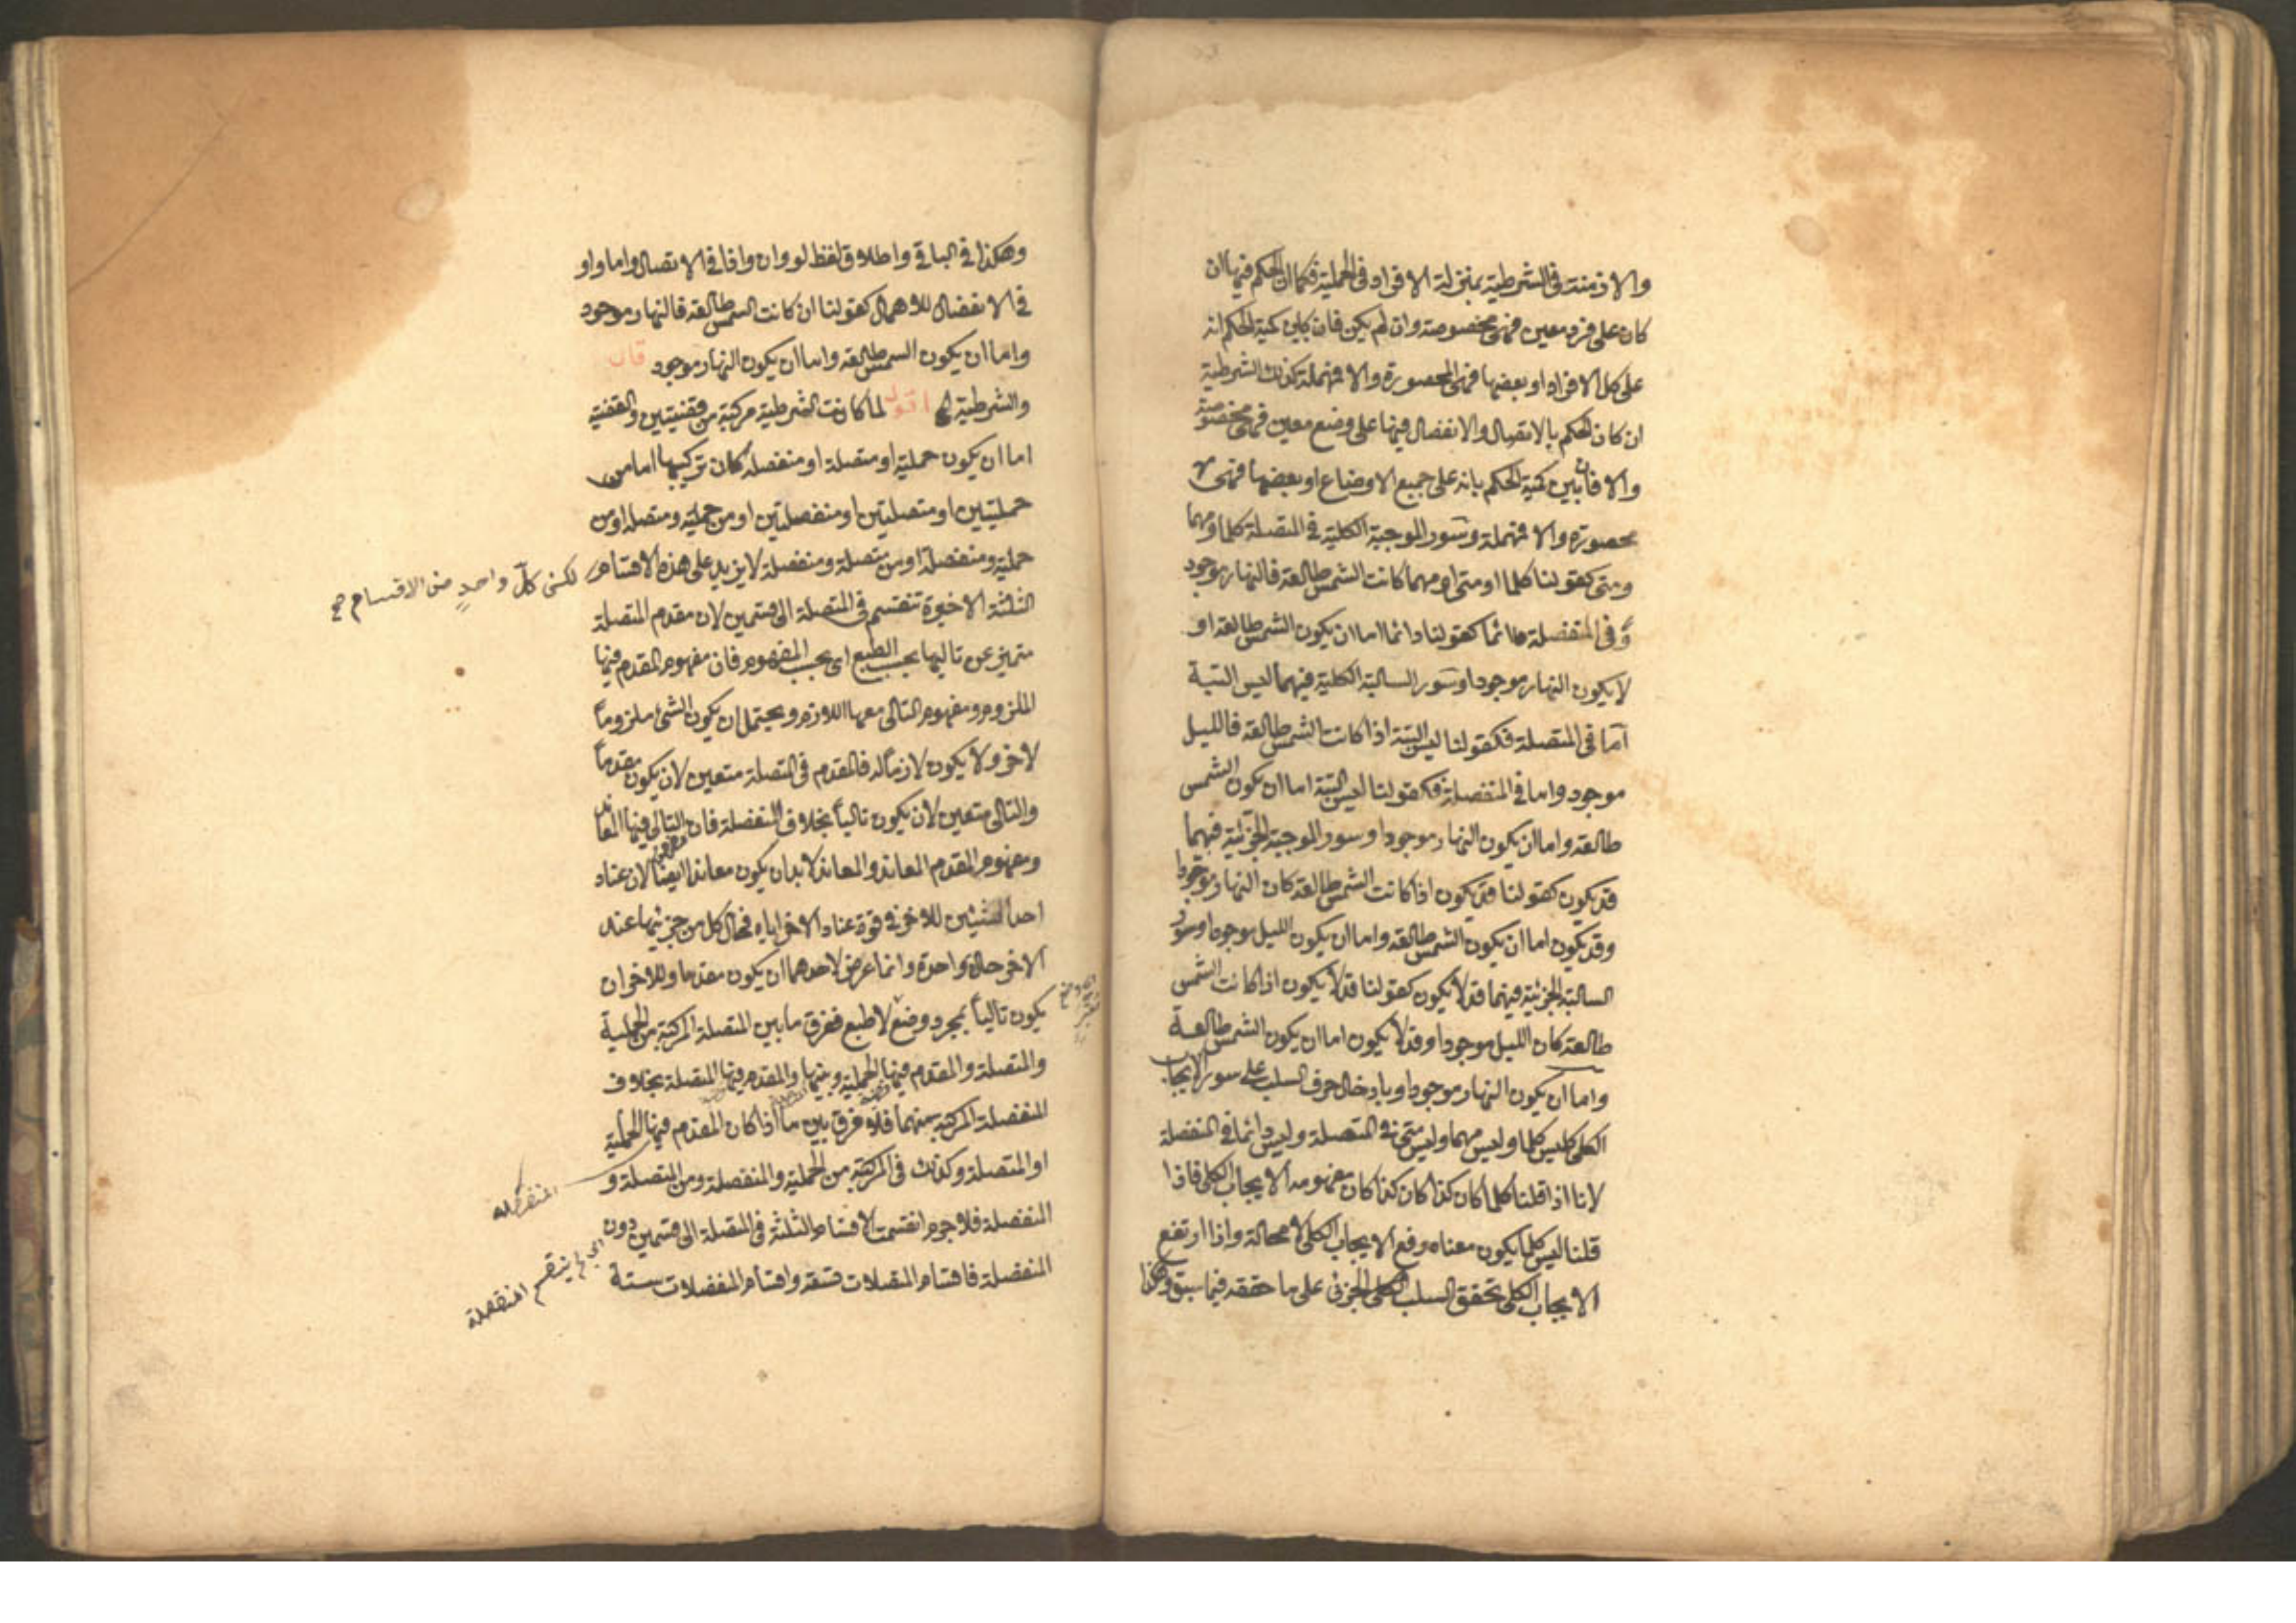 والازمنة فى الشرطية بمنزلة الافراد فى الحملية فكما ان الحكم فيها ان
كان على فرد معين فهى مخصوصة وان لم يكن فان بين كمية الحكم انه
على كل الافراد او بعضها فهى المحصورة والا فمهملة كذلك الشرطية
ان كان الحكم بالاتصال والانفصال فيها على وضع معين فهى مخصوصة
والا فان بين كمية الحكم بانه على جميع الاوضاع او بعضها فهى
محصورة والا فمهملة وسور الموجبة الكلية فى المتصلة كلما ومهما
ومتى كقولنا كلما او متى او مهما كانت الشمس طالعة فالنهار موجود
وفى المنفصلة دائما كقولنا دائما اما ان يكون الشمس طالعة او
لا يكون النهار موجودا وسور السالبة الكلية فيهما ليس البتة
اما فى المتصلة فكقولنا ليس البتة اذا كانت الشمس طالعة فالليل
موجود واما فى المنفصلة فكقولنا ليس البتة اما ان يكون الشمس
طالعة واما ان يكون النهار موجودا وسور الموجبة الجزئية فيهما
قد يكون كقولنا قد يكون اذا كانت الشمس طالعة كان النهار موجودا
وقد يكون اما ان يكون الشمس طالعة واما ان يكون الليل موجودا وسور
السالبة الجزئية فيهما قد لا يكون كقولنا قد لا يكون اذا كانت الشمس
طالعة كان الليل موجودا وقد لا يكون اما ان يكون الشمس طالعة
واما ان يكون النهار موجودا وبادخال حرف السلب على سور الايجاب
الكلى كليس كلما وليس مهما وليس متى فى المتصلة وليس دائما فى المنفصلة
لانا اذا قلنا كلما كان كذا كان كذا كان مفهومه الايجاب الكلى فاذا
قلنا ليس كلما يكون معناه رفع الايجاب الكلى لا محالة واذا ارتفع
الايجاب الكلى تحقق السلب الجزئى على ما حققه فيما سبق وهكذا
وهكذا فى البواقى واطلاق لفظ لو وان واذا فى الاتصال واما واو
فى الانفصال للاهمال كقولنا ان كانت الشمس طالعة فالنهار موجود
واما ان يكون الشمس طالعة واما ان يكون النهار موجود قال
والشرطية الخ اقول لما كانت الشرطية مركبة من قضيتين والقضية
اما ان يكون حملية او متصلة او منفصلة كان تركيبها اما من
حمليتين او متصلتين او منفصلتين او من حملية ومتصلة او من
حملية ومنفصلة او من متصلة ومنفصلة لا يزيد على هذه الاقسام
لكن كل واحد من الاقسام صح
الثلثة الاخيرة تنقسم فى المتصلة الى قسمين لان مقدم المتصلة
متميز عن تاليها بحسب الطبع اى بحسب المفهوم فان مفهوم المقدم فيها
الملزوم ومفهوم التالى معها اللازم ويحتمل ان يكون الشئ ملزوماً
لاخر ولا يكون لازماً له فالمقدم فى المتصلة متعين لان يكون مقدماً
والتالى متعين لان يكون تالياً بخلاف المنفصلة فان التالى فيها المعاند
ومفهوم المقدم المعاند والمعاند لا بد ان يكون معاندا ايضا لان عناد
احد الشيئين للاخر فى قوة عناد الاخر اياه فحال كل من جزئيها عند
الاخر حالة واحدة وانما عرض لاحدهما ان يكون مقدما وللاخر ان
يكون تالياً بمجرد وضع لا طبع ففرق ما بين المتصلة المركبة من الحملية
والمتصلة والمقدم فيها الحملية وبينها والمقدم فيها المتصلة بخلاف
المنفصلة المركبة منهما فلا فرق بين ما اذا كان المقدم فيها الحملية
او المتصلة وكذلك فى المركبة من الحملية والمنفصلة ومن المتصلة و
المنفصلة
المنفصلة فلا جرم انقسمت الاقسام الثلثة فى المتصلة الى قسمين دون
المنفصلة فاقسام المتصلات تسعة واقسام المنفصلات ستة
ينقسم المنفصلة